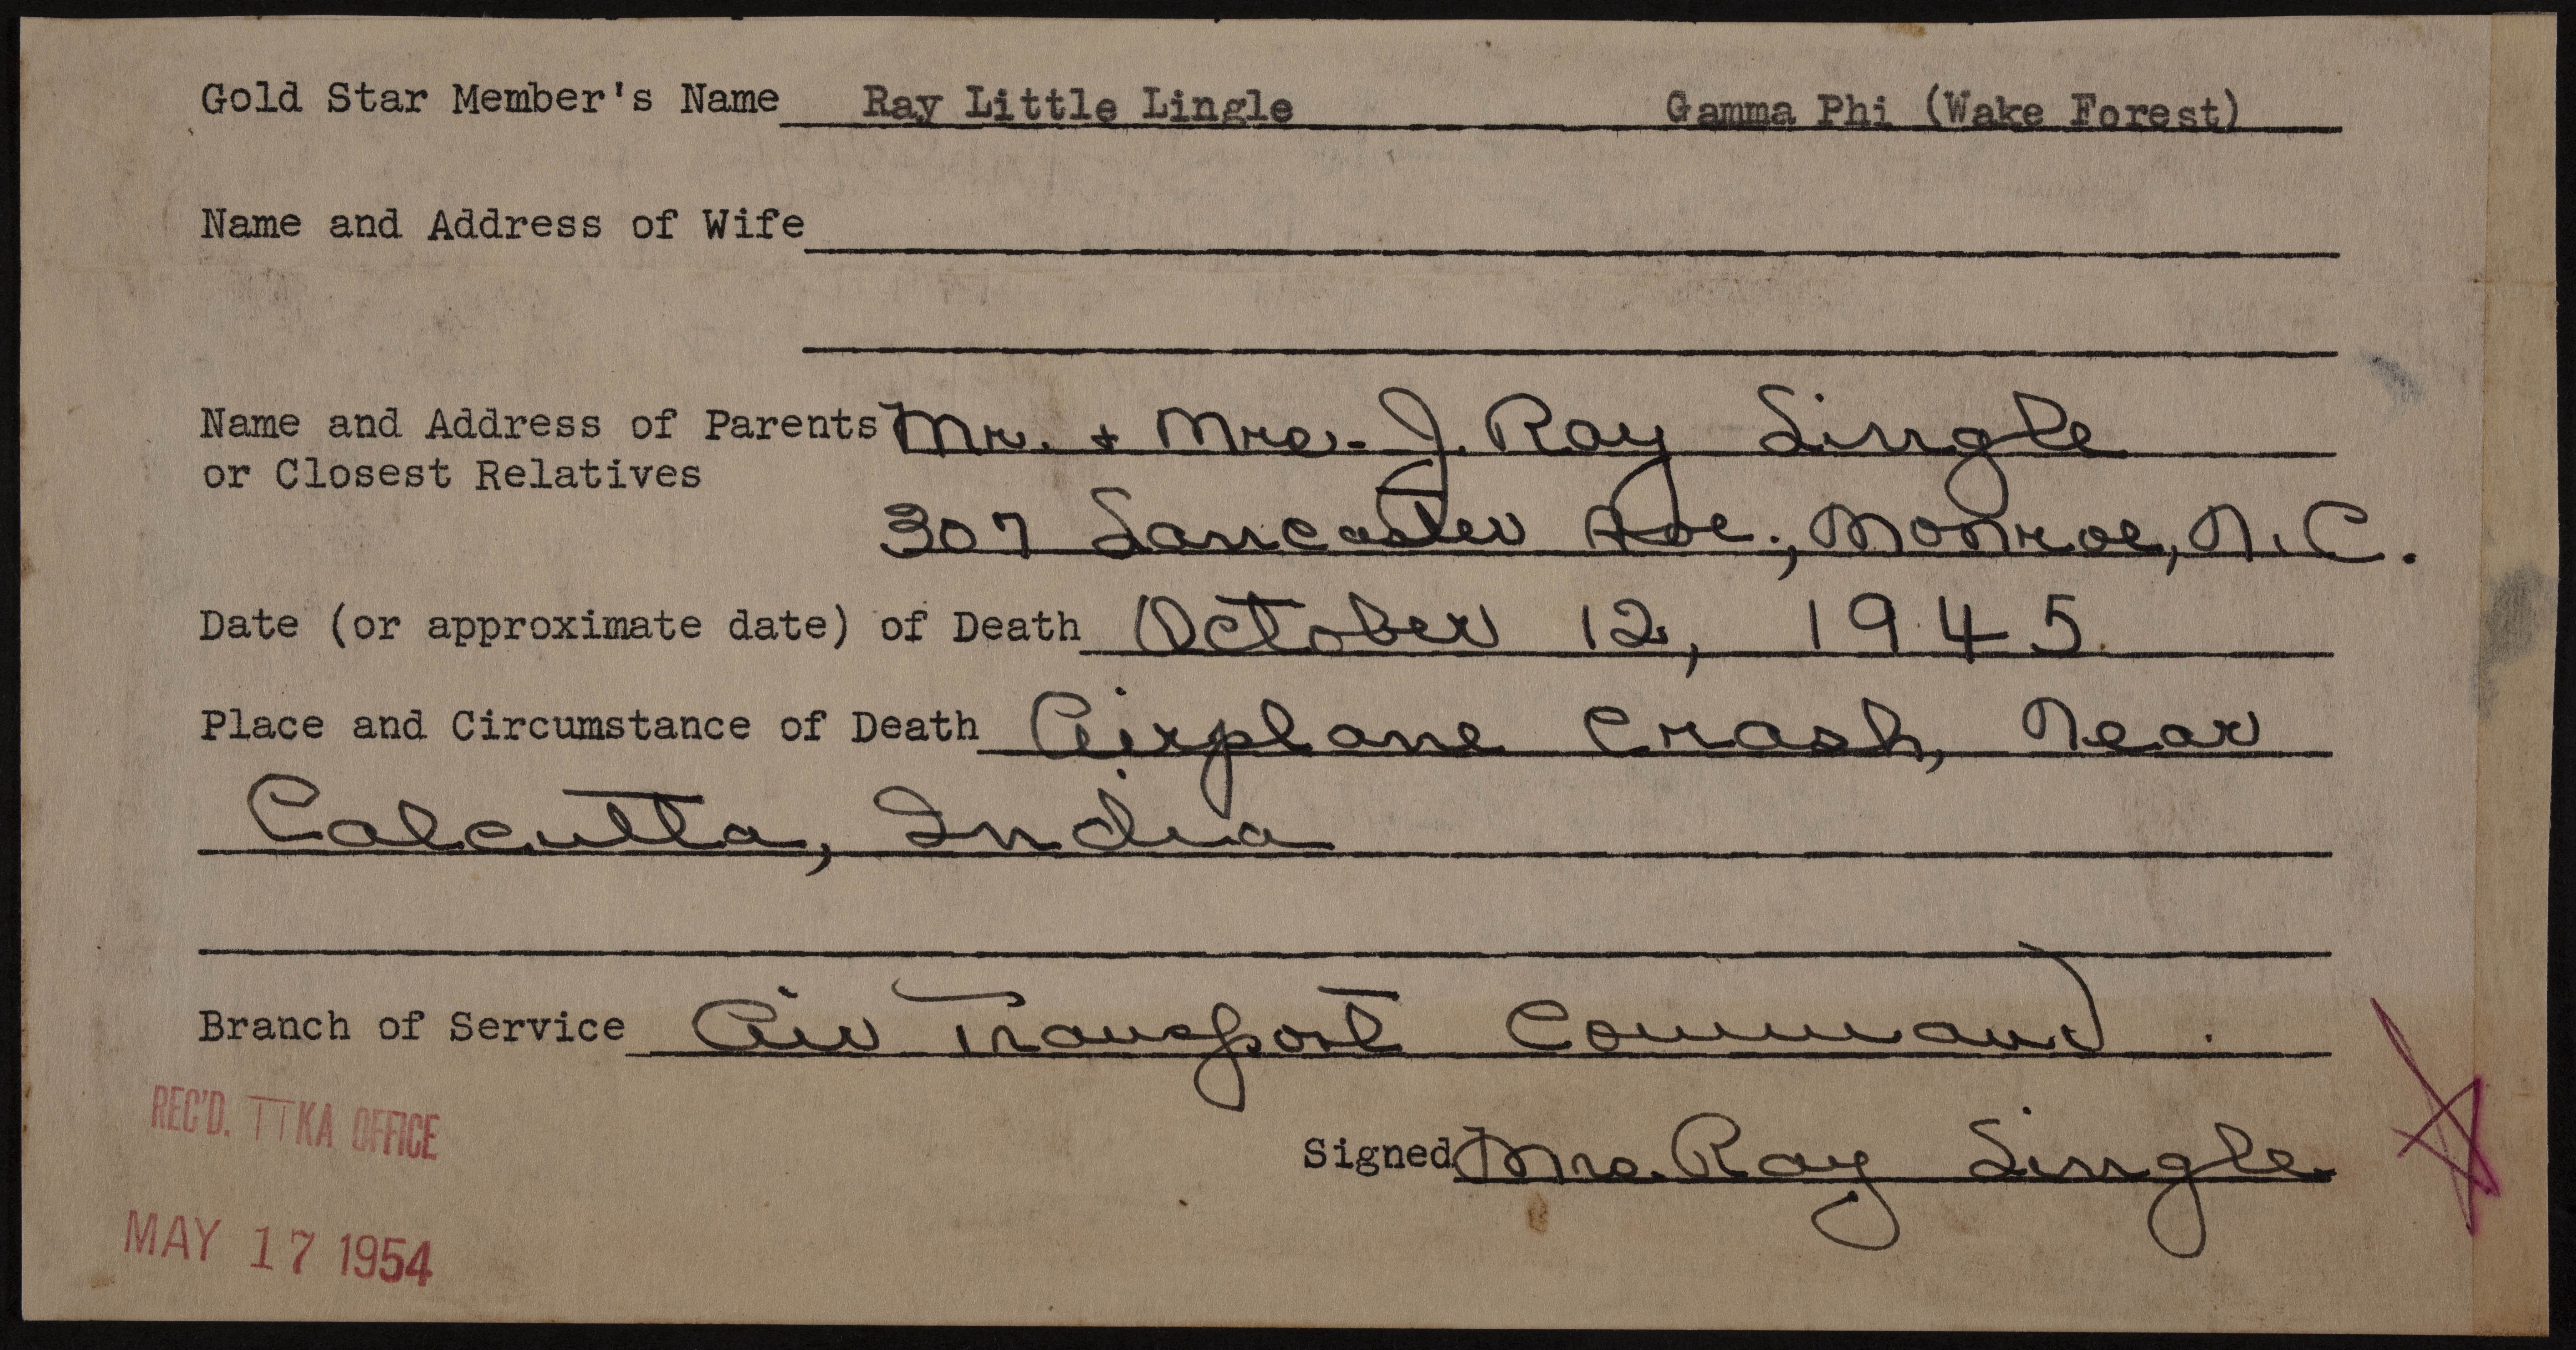 Gold Star Member's Name Ray Little Lingle Gamma Phi (Wake Forest)
Name and Address of Wife
Name and Address of Parents Mr. + Mrs. J. Ray Lingle
or Closest Relatives
307 Lancaster Ave., Monroe, N.C.
Date (or approximate date) of Death October 12, 1945
Place and Circumstance of Death Airplane crash, Near
Calcutta, India
Branch of Service Air Transport Command.
REC'D. ΠKA OFFICE
Signed Mrs. Ray Lingle
MAY 17 1954